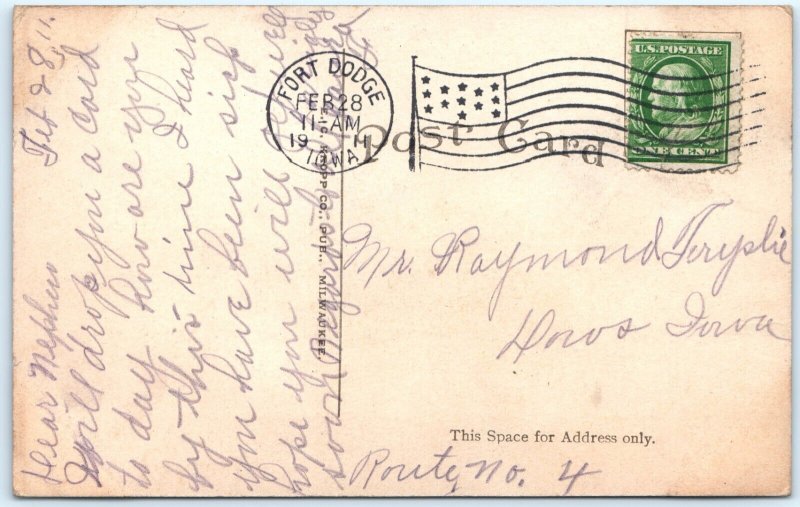 Feb 28 11.
Dear Nephew
I will drop you a card
to day how are you
by this time I heard
you have been sick
hope you will get well
soon Regards to all
FORT DODGE
FEB 28
11-AM
1911
IOWA
Post Card
U.S. POSTAGE
ONE CENT
CO., PUB., MILWAUKEE.
Mr. Raymond
Dows Iowa
This Space for Address only.
Route No. 4